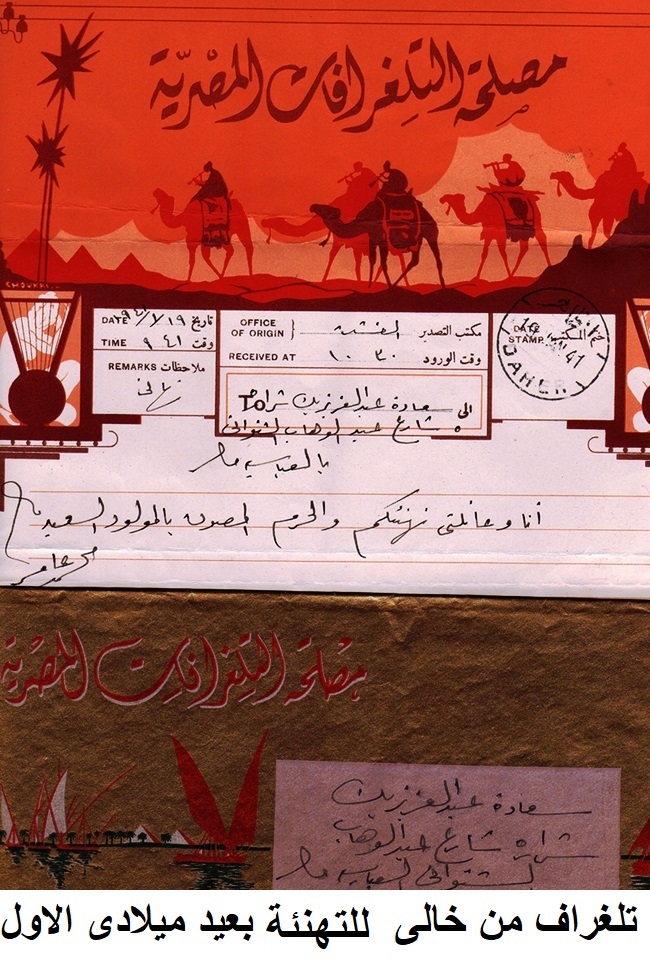 مصلحة التلغرافات المصرية
CHOUKRI
DATE ٩٤١/٧/١٩ تاريخ
TIME ٩ ٤١ وقت
REMARKS ملاحظات
OFFICE OF ORIGIN مكتب التصدير
RECEIVED AT ١٠ ٣٠ وقت الورود
DATE STAMP المكتب
DAHER
41
TO الى سعادة عبد العزيز بك
٥ شارع عبد الوهاب الشنوانى
بالعباسية مصر
أنا وعائلتى نهنئكم والحرم المصون بالمولود السعيد
محمد عامر
مصلحة التلغرافات المصرية
سعادة عبد العزيز بك
٥ شارع عبد الوهاب
الشنوانى العباسية مصر
تلغراف من خالى للتهنئة بعيد ميلادى الاول